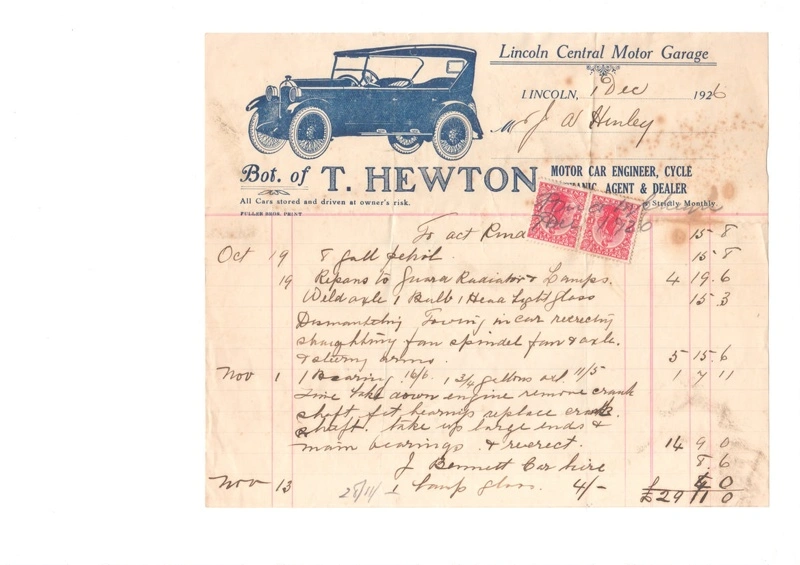 Lincoln Central Motor Garage
LINCOLN, 1 Dec 1926
Mr J A Henley
Bot. of T. HEWTON
MOTOR CAR ENGINEER, CYCLE
AGENT & DEALER
All Cars stored and driven at owner's risk.
Strictly Monthly.
FULLER BROS. PRINT
To act Rend 15 8
Oct 19 8 gall petrol. 15 8
19 Repairs to Guard Radiator & Lamps. 4 19 6
Weld axle 1 Bulb 1 Head Light Glass 15 3
Dismantling Towing in car recrecting
straightning fan spindel fan & axle.
& sturing arms. 5 15 6
Nov 1 1 Bearing 16/6 1 3/4 gallons oil 11/5 1 7 11
Time take down engine remove crank
shaft fit bearings replace crank
shaft. take up large ends &
main bearings & recrect. 14 9 0
J Bennett Car hire 8. 6
Nov 13 28/11/ 1 Lamp glass. 4/- 4 0
£29 11 0